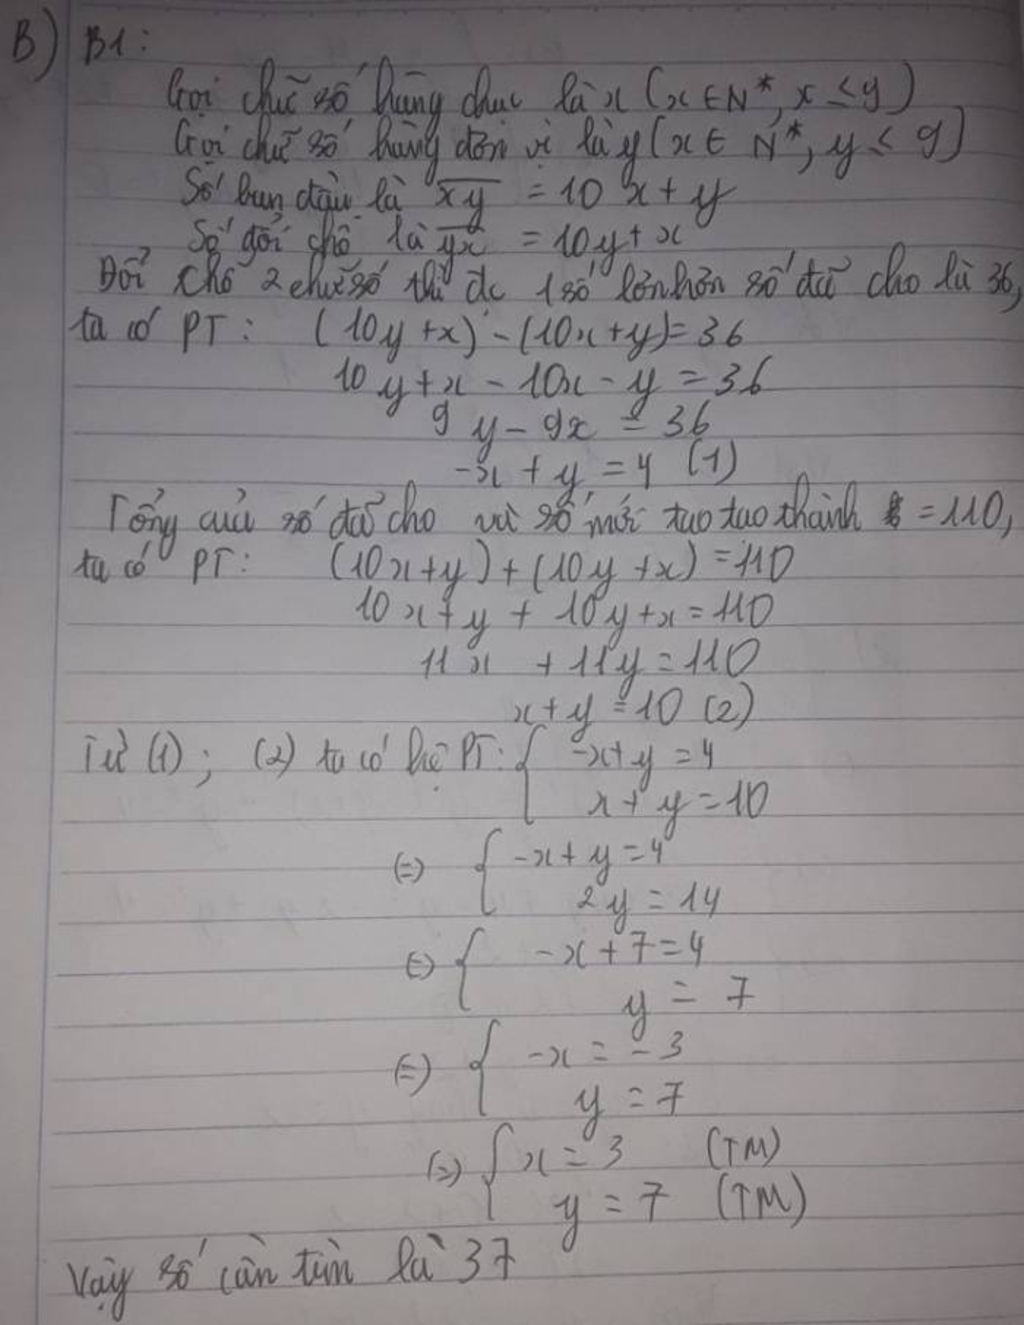 B) B1:
Gọi chữ số hàng chục là x (x ∈ N*, x ≤ 9)
Gọi chữ số hàng đơn vị là y (x ∈ N*, y ≤ 9)
Số ban đầu là xy = 10x + y
Số đổi chỗ là yx = 10y + x
Đổi chỗ 2 chữ số thì đc 1 số lớn hơn số đã cho là 36,
ta có PT: (10y + x) - (10x + y) = 36
10y + x - 10x - y = 36
9y - 9x = 36
-x + y = 4 (1)
Tổng của số đã cho và số mới tạo tạo thành = 110,
ta có PT: (10x + y) + (10y + x) = 110
10x + y + 10y + x = 110
11x + 11y = 110
x + y = 10 (2)
Từ (1); (2) ta có hệ PT: { -x + y = 4
x + y = 10
(=) { -x + y = 4
2y = 14
(=) { -x + 7 = 4
y = 7
(=) { -x = -3
y = 7
(=) { x = 3 (TM)
y = 7 (TM)
Vậy số cần tìm là 37